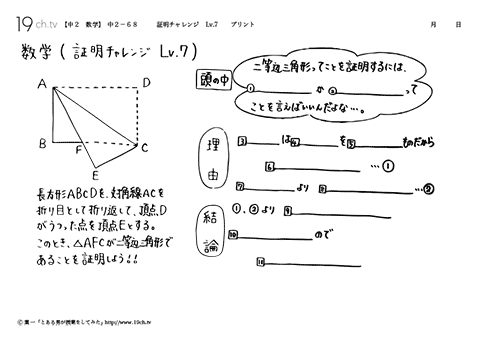 19ch.tv 【中2 数学】 中2-68 証明チャレンジ Lv.7 プリント 月 日
数学 ( 証明チャレンジ Lv.7 )
A
D
B
F
C
E
長方形ABCDを、対角線ACを
折り目として折り返して、頂点D
がうつった点を頂点Eとする。
このとき、△AFCが二等辺三角形で
あることを証明しよう!!
頭の中
二等辺三角形ってことを証明するには、
① が ② って
ことを言えばいいんだよな…。
理由
3 は 4 を 5 ものだから
6 …①
7 より 8 …②
結論
①、②より 9
10 ので
11
Ⓒ 葉一「とある男が授業をしてみた」http://www.19ch.tv